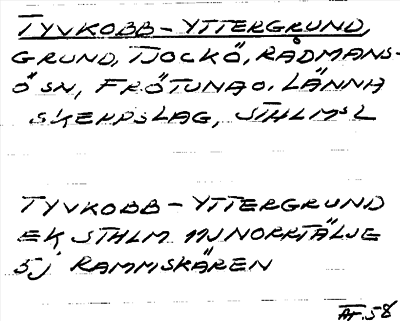 TYVKOBB-YTTERGRUND,
GRUND, TJOCKÖ, RÅDMANS-
Ö SN, FRÖTUNA O. LÄNNA
SKEPPSLAG, STHLMS L
TYVKOBB-YTTERGRUND
EK STHLM 11J NORRTÄLJE
5J RAMMSKÄREN
58